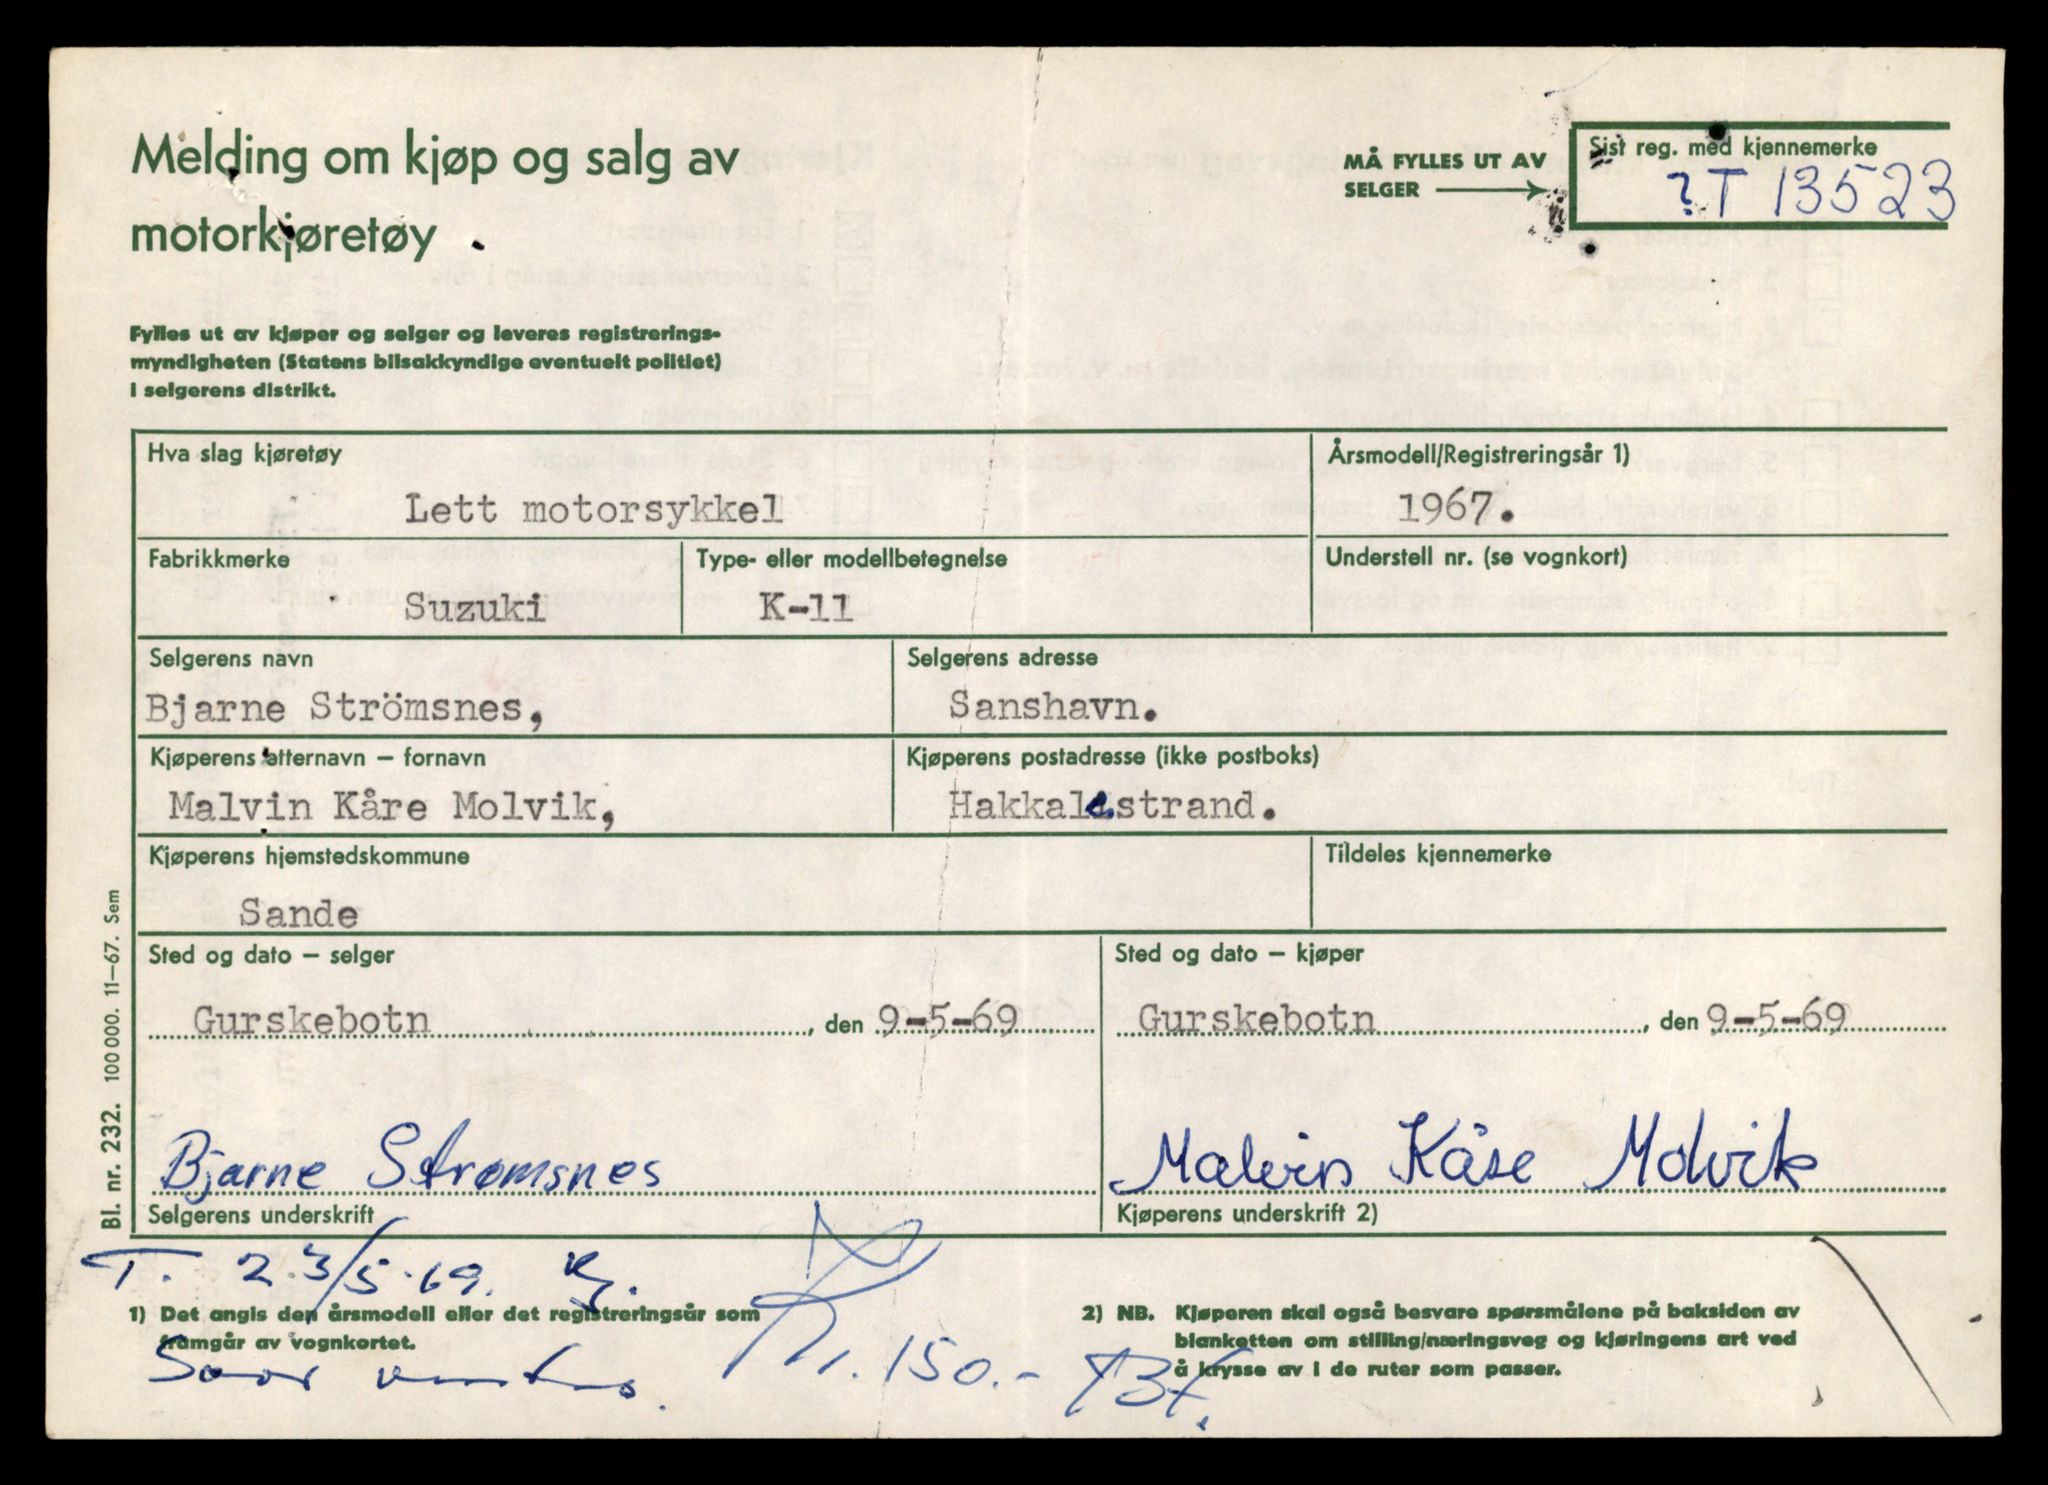 Melding om kjøp og salg av
motorkjøretøy
MÅ FYLLES UT AV
SELGER
Sist reg. med kjennemerke
? T 13523
Fylles ut av kjøper og selger og leveres registrerings-
myndigheten (Statens bilsakkyndige eventuelt politiet)
i selgerens distrikt.
Hva slag kjøretøy
Lett motorsykkel
Årsmodell/Registreringsår 1)
1967.
Fabrikkmerke
Suzuki
Type- eller modellbetegnelse
K-11
Understell nr. (se vognkort)
Selgerens navn
Bjarne Strömsnes,
Selgerens adresse
Sanshavn.
Kjøperens etternavn – fornavn
Malvin Kåre Molvik,
Kjøperens postadresse (ikke postboks)
Hakkalestrand.
Kjøperens hjemstedskommune
Sande
Tildeles kjennemerke
Sted og dato – selger
Gurskebotn, den 9-5-69
Sted og dato – kjøper
Gurskebotn, den 9-5-69
Bjarne Strømsnes
Selgerens underskrift
Malvin Kåre Molvik
Kjøperens underskrift 2)
Bl. nr. 232. 100 000. 11–67. Sem
T. 23/5-69.
1) Det angis den årsmodell eller det registreringsår som
framgår av vognkortet.
Kr. 150.-
2) NB. Kjøperen skal også besvare spørsmålene på baksiden av
blanketten om stilling/næringsveg og kjøringens art ved
å krysse av i de ruter som passer.